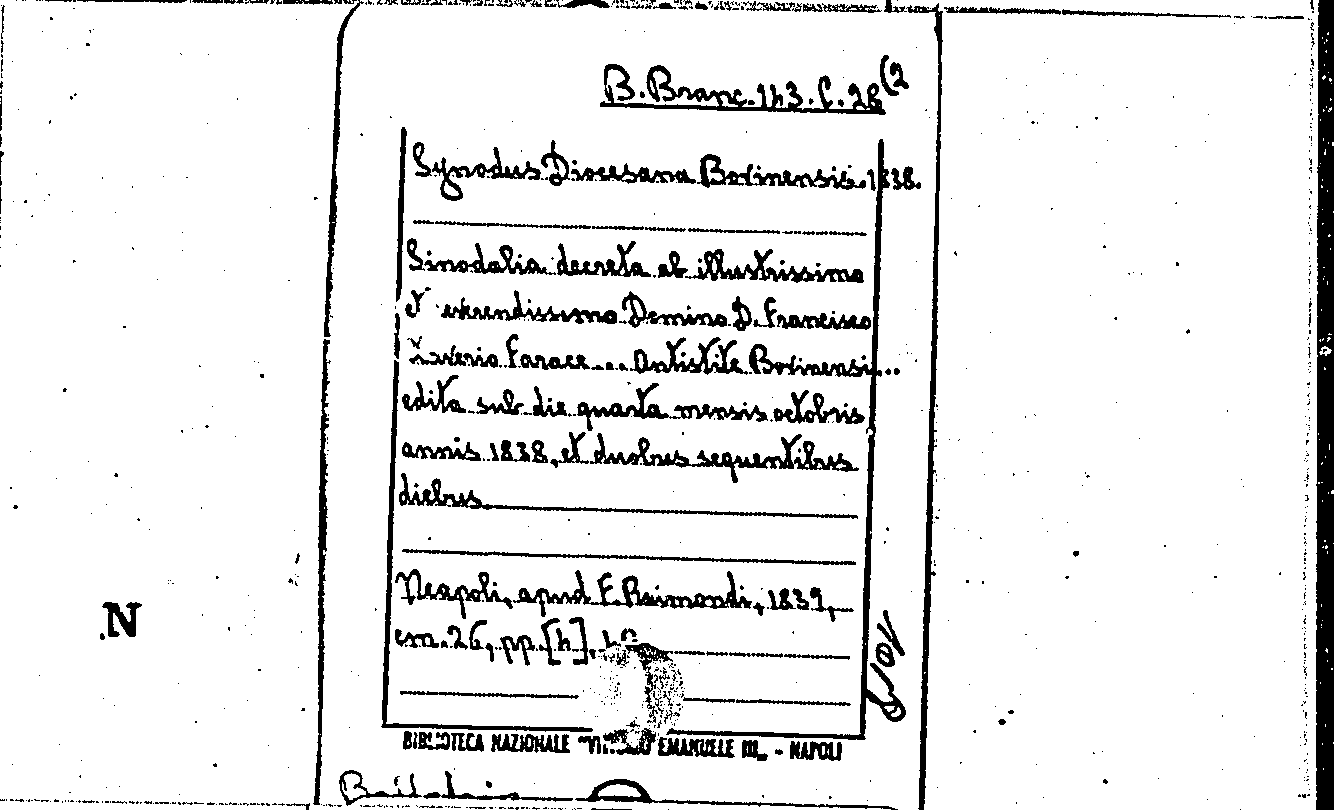 B. Branc. 143. C. 28(2
Synodus Diocesana Bovinensis. 1838.
Sinodalia decreta ab illustrissimo
et reverendissimo Domino D. Francisco
Xaverio Farace ... Antistite Bovinensi ...
edita sub die quarta mensis octobris
annis 1838, et duobus sequentibus
diebus.
N
Neapoli, apud F. Raimondi, 1839,
cm. 26, pp. [4],
BIBLIOTECA NAZIONALE "VITTORIO EMANUELE III" - NAPOLI